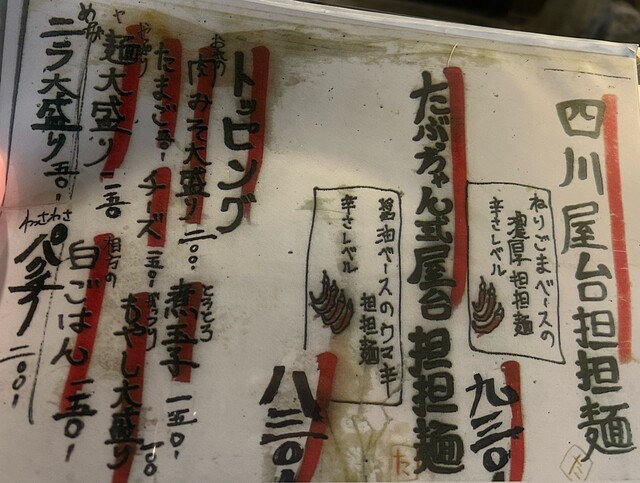 四川屋台担担麺
ねりごまベースの
濃厚担担麺
辛さレベル
九三〇
たぶちゃん式屋台担担麺
醤油ベースのウマキ
担担麺
辛さレベル
八三〇
トッピング
お家の
肉みそ大盛り 二〇〇
とろとろ
煮玉子 一五〇
やっぱり
たまご
チーズ 一五〇
もやし大盛り 一〇〇
ヤ
麺大盛り 一五〇
相方の
白ごはん 一五〇
めちゃ
ニラ大盛り 五〇
わっさわさ
パクチー 二〇〇